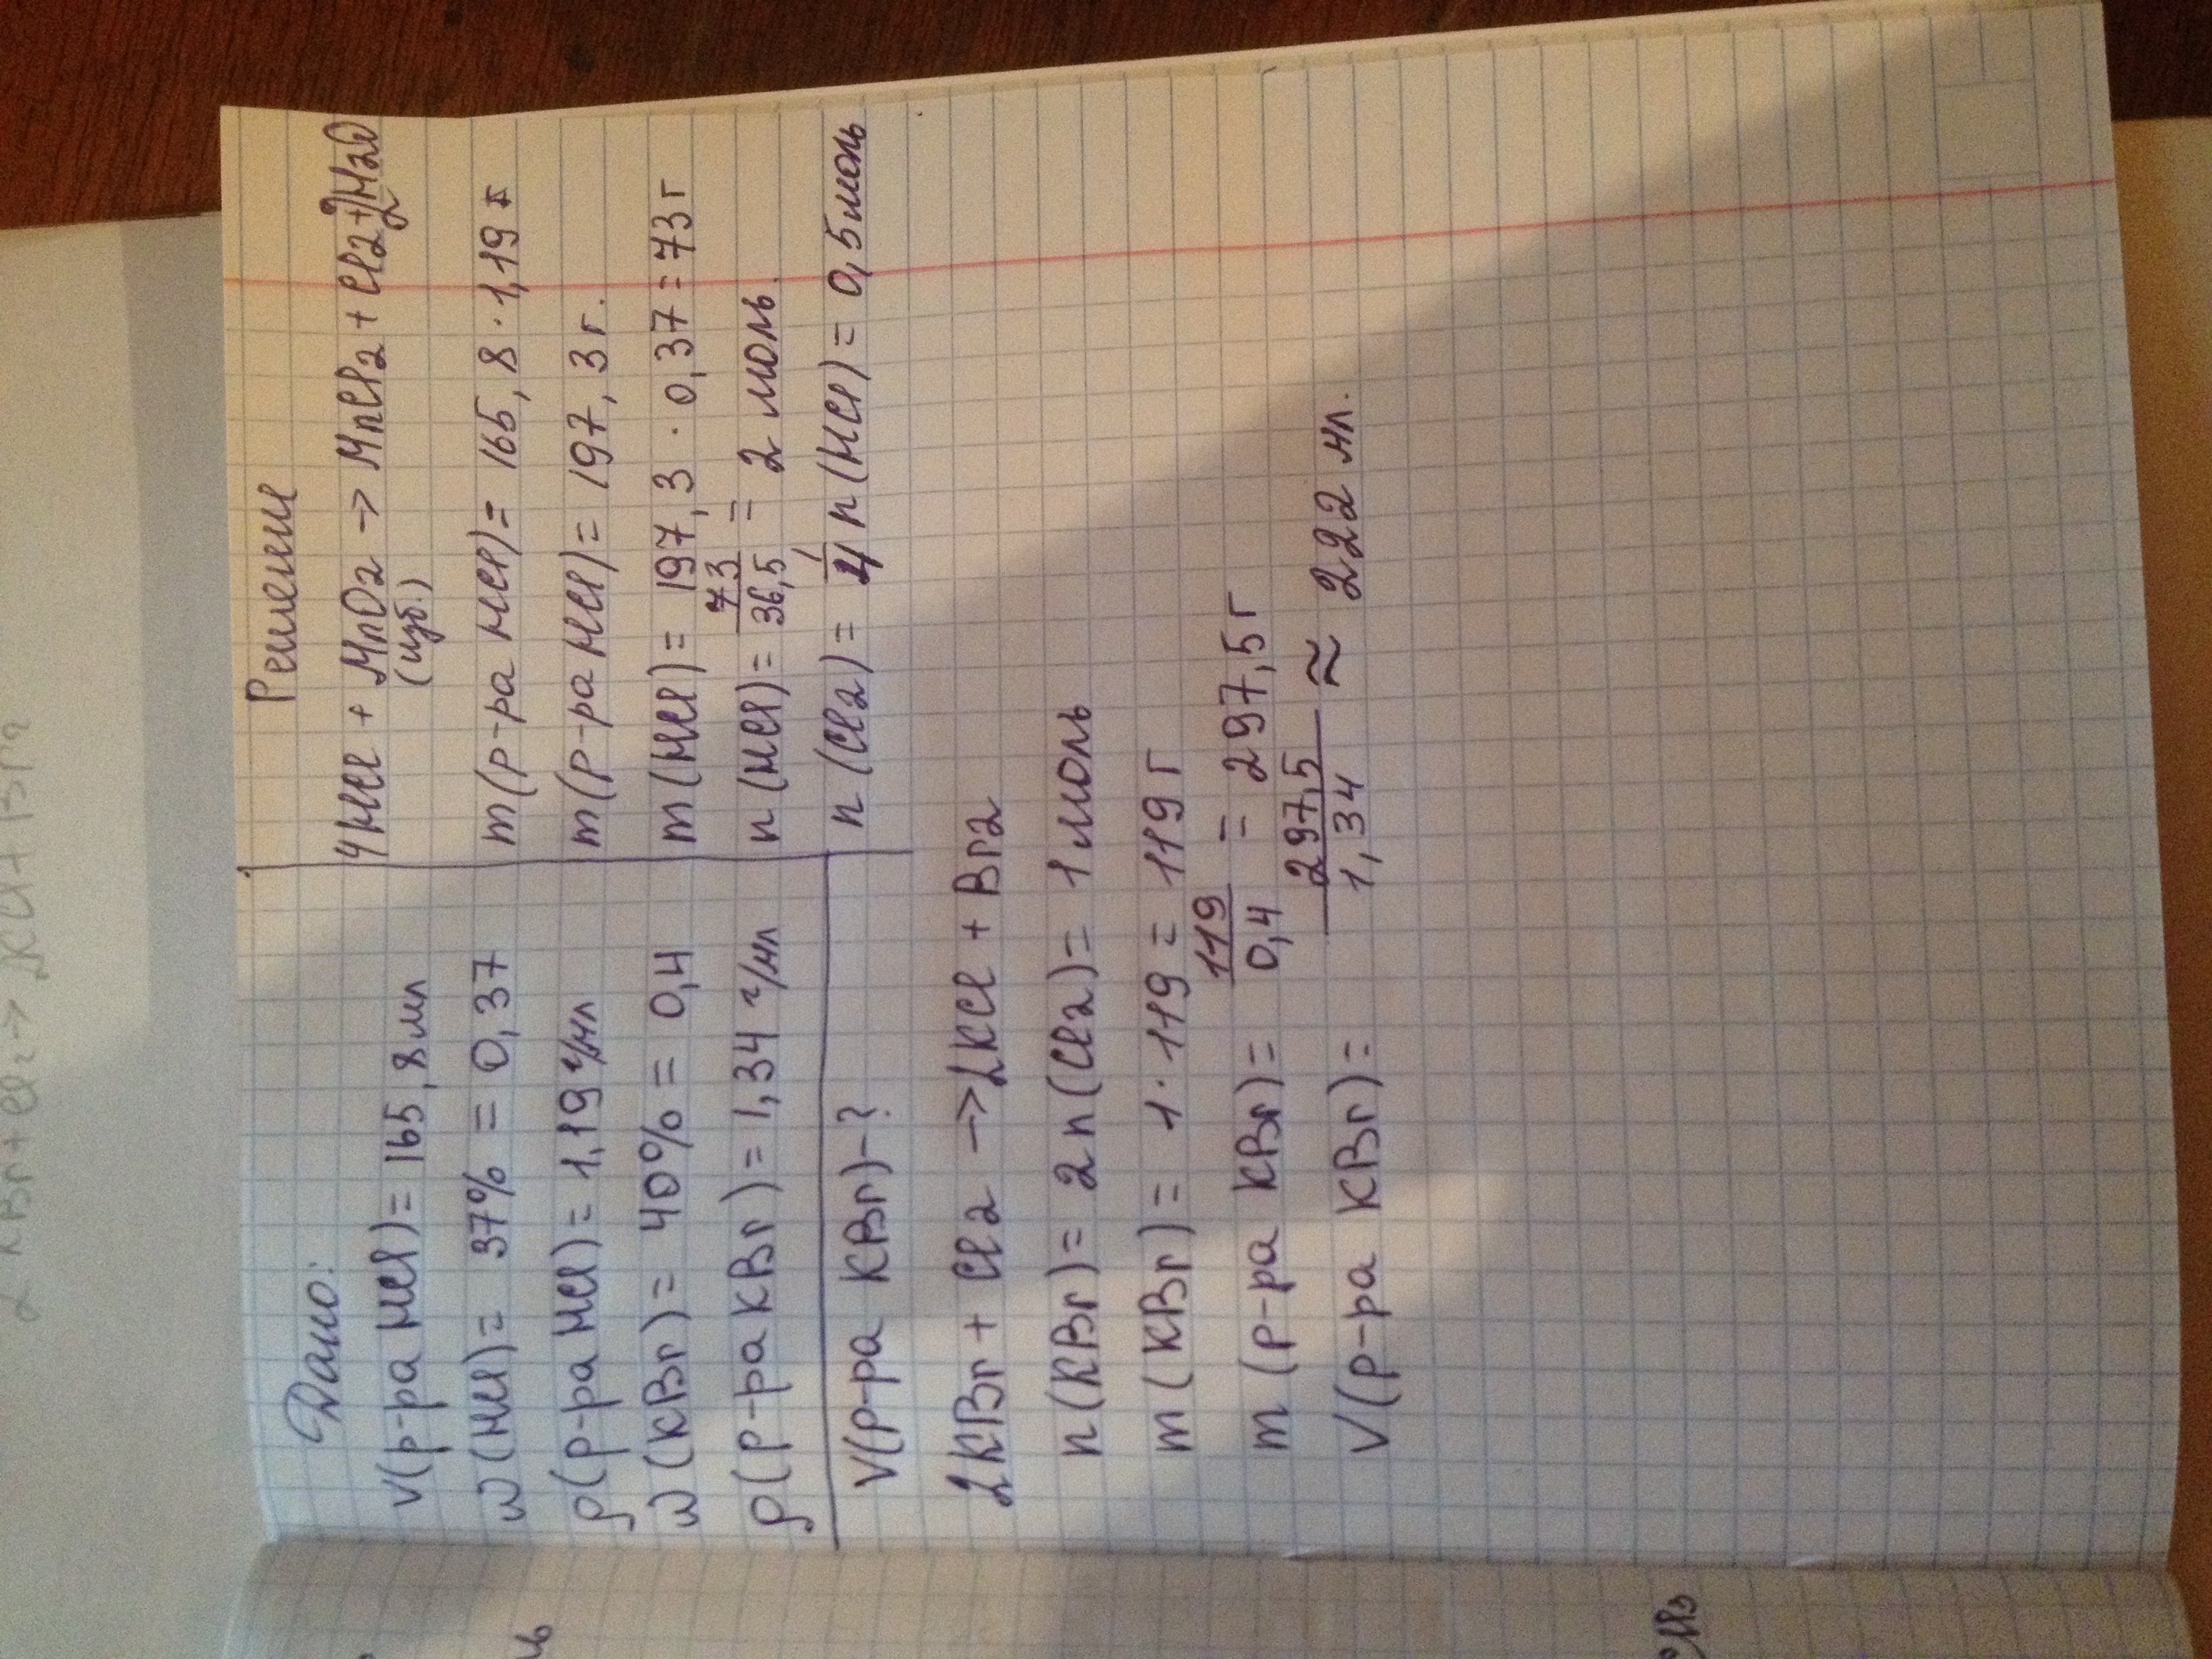 Дано:
V(р-ра HCl) = 165,8 мл
ω(HCl) = 37% = 0,37
ρ(р-ра HCl) = 1,19 г/мл
ω(KBr) = 40% = 0,4
ρ(р-ра KBr) = 1,34 г/мл
V(р-ра KBr) - ?
Решение
4HCl + MnO2 → MnCl2 + Cl2 + 2H2O
(изб.)
m(р-ра HCl) = 165,8 · 1,19 г
m(р-ра HCl) = 197,3 г.
m(HCl) = 197,3 · 0,37 = 73 г
n(HCl) = 73/36,5 = 2 моль.
n(Cl2) = 1/4 n(HCl) = 0,5 моль
2KBr + Cl2 → 2KCl + Br2
n(KBr) = 2n(Cl2) = 1 моль
m(KBr) = 1 · 119 = 119 г
m(р-ра KBr) = 119/0,4 = 297,5 г
V(р-ра KBr) = 297,5/1,34 ≈ 222 мл.